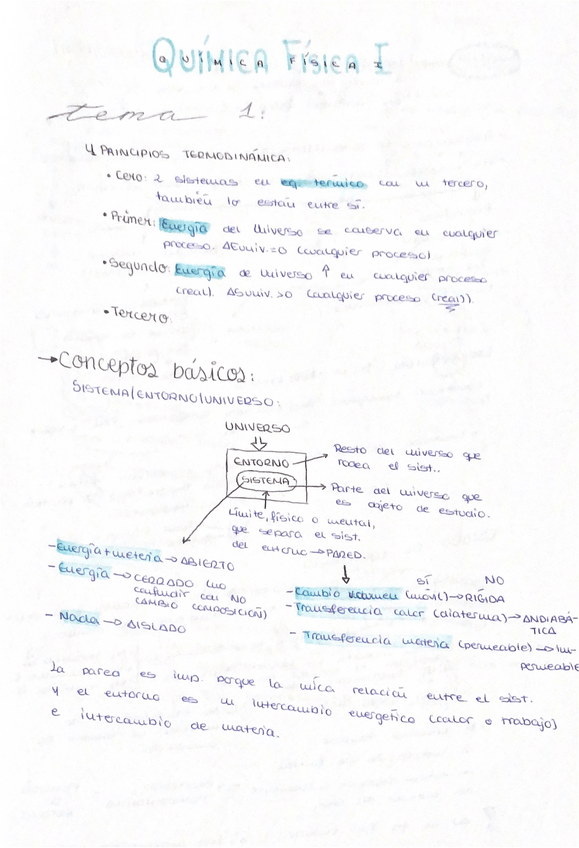 QUÍMICA FÍSICA I
tema 1:
4 PRINCIPIOS TERMODINÁMICA:
• Cero: 2 sistemas en eq. térmico con un tercero,
también lo están entre sí.
• Primer: Energía del Universo se conserva en cualquier
proceso. ΔEuniv.=0 (cualquier proceso)
• Segundo: Energía de Universo ↑ en cualquier proceso
(real). ΔSuniv.>0 (cualquier proceso (real)).
• Tercero
→Conceptos básicos:
SISTEMA/ENTORNO/UNIVERSO:
UNIVERSO
ENTORNO → Resto del universo que
rodea el sist..
SISTEMA → Parte del universo que
es objeto de estudio.
Límite, físico o mental,
que separa el sist.
del entorno → PARED.
- Energía + materia → ABIERTO
- Energía → CERRADO (no
confundir con NO
CAMBIO COMPOSICIÓN)
- Nada → AISLADO
SÍ NO
- Cambio volumen (móvil) → RÍGIDA
- Transferencia calor (diaterma) → ANDIABÁ-
TICA
- Transferencia materia (permeable) → Im-
permeable
La pared es imp. porque la única relación entre el sist.
y el entorno es un intercambio energético (calor o trabajo)
e intercambio de materia.